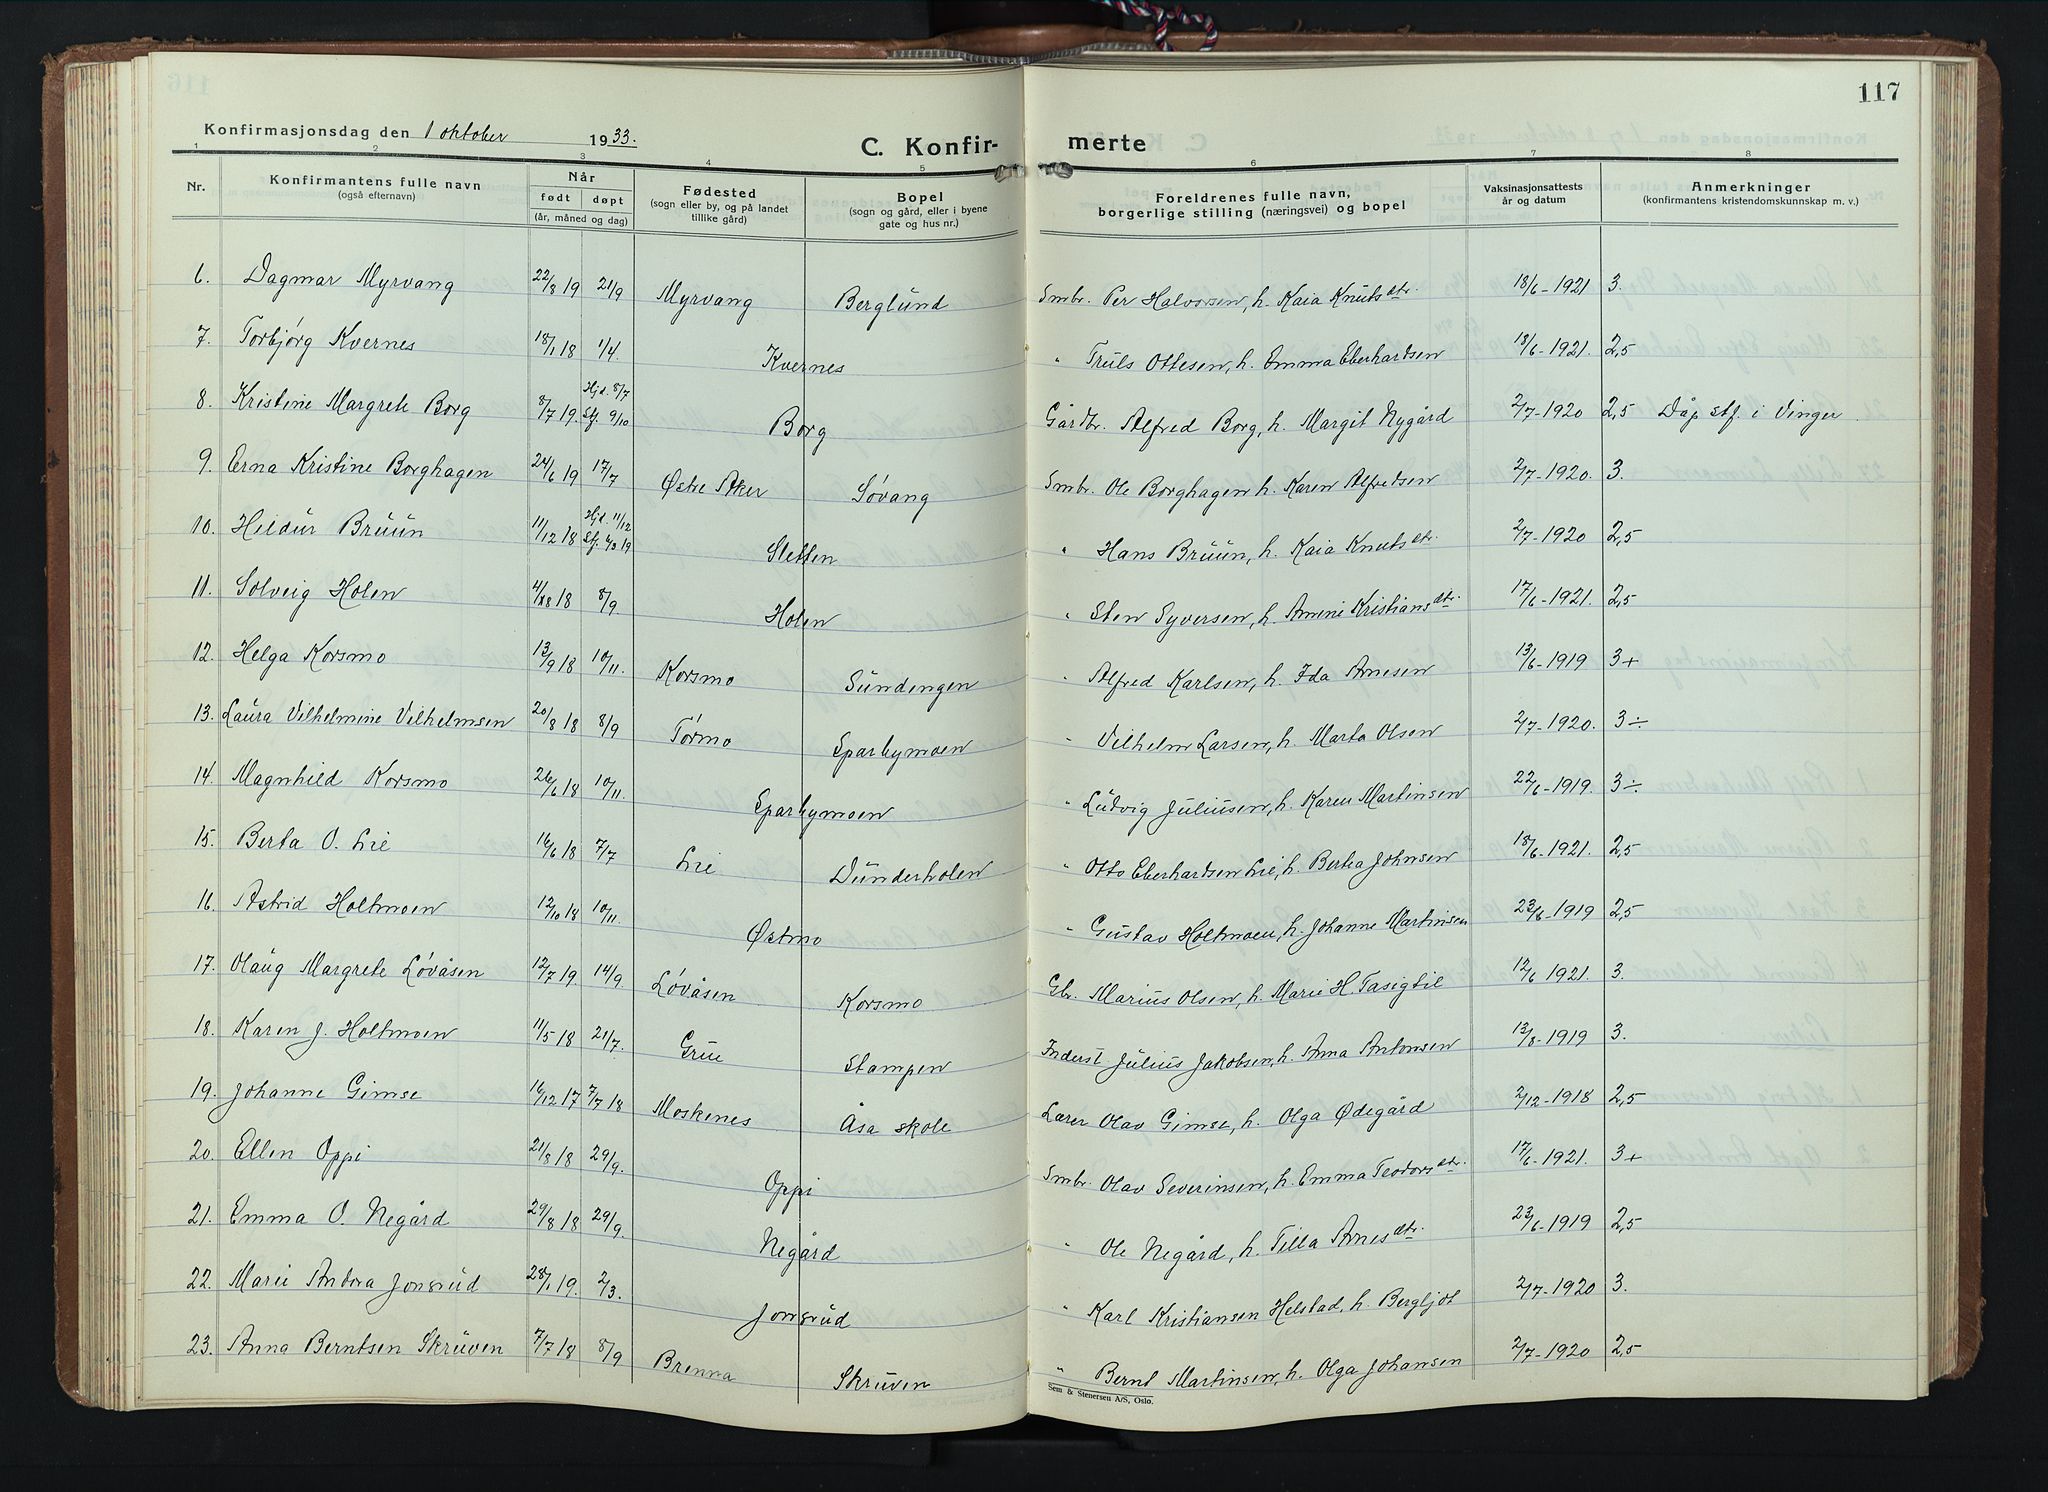 117
Konfirmasjonsdag den 1 oktober 1933.
C. Konfirmerte
1 2 3 4 5 6 7 8
Nr.
Konfirmantens fulle navn
(også efternavn)
Når
født døpt
(år, måned og dag)
Fødested
(sogn eller by, og på landet
tillike gård)
Bopel
(sogn og gård, eller i byene
gate og hus nr.)
Foreldrenes fulle navn,
borgerlige stilling (næringsvei) og bopel
Vaksinasjonsattests
år og datum
Anmerkninger
(konfirmantens kristendomskunnskap m. v.)
6. Dagmar Myrvang 22/8 19 21/9 Myrvang Berglund Smbr. Per Halvorsen, h. Kaia Knutsdtr. 18/6-1921 3.
7. Torbjørg Kvernes 18/1 18 1/4. Kvernes " Truls Ottesen, h. Emma Eberhardsen 18/6-1921. 2,5
8. Kristine Margrete Borg 8/7 19. Hjd. 8/7 Stf. 9/10 Borg Gårdbr. Alfred Borg, h. Margit Nygård 2/7-1920 2,5 Dåp stf. i Vinger
9. Erna Kristine Borghagen 24/6 19 17/7 Østre Aker Søvang Smbr. Ole Borghagen h. Karen Alfredsen 2/7-1920. 3.
10. Hildur Bruun 11/12 18 Hjd. 11/12 Stf. 19 Sletten " Hans Bruun, h. Kaia Knutsdtr. 2/7-1920 2,5
11. Solveig Holen 4/8 18 8/9. Holen " Sten Syversen, h. Amine Kristiansdtr. 17/6-1921. 2,5
12. Helga Korsmo 13/9 18 10/11. Korsmo Sundengen " Alfred Karlsen, h. Ida Arnesen 13/6-1919 3+
13. Laura Vilhelmine Vilhelmsen 20/8 18 8/9 Tormo Sparbymoen " Vilhelm Larsen, h. Marta Olsen 2/7-1920. 3÷
14. Magnhild Korsmo 26/6 18 10/11. Sparbymoen " Ludvig Juliussen, h. Karen Martinsen 22/6-1919. 3÷
15. Berta O. Lie 16/6 18 7/7 Lie Dunderholen " Otto Eberhardsen Lie, h. Bertea Johnsen 18/6-1921. 2,5
16. Astrid Holtmoen 12/10 18 10/11. Østmo " Gustav Holtmoen, h. Johanne Martinsen 23/6-1919 2,5
17. Olaug Margrete Løvåsen 12/7 19. 14/9 Løvåsen Korsmo Gbr. Marius Olsen, h. Marie H. Tasigtil 12/6 1921. 3.
18. Karen J. Holtmoen 11/5 18 21/7. Grue Stampen Inderst Julius Jakobsen, h. Anna Antonsen 13/8-1919 3.
19. Johanne Gimse 16/12 17 7/7 18 Moskenes Åsa skole Lærer Olav Gimse, h. Olga Ødegård 2/12-1918 2,5
20. Ellen Oppi 21/8 18 29/9. Oppi Smbr. Olav Severinsen, h. Emma Teodorsdtr. 17/6-1921. 3+
21. Emma O. Negård 29/8 18 29/9. Negård " Ole Negård, h. Tilla Arnesdtr. 23/6-1919 2,5
22. Marie Andora Jonsrud 28/1 19. 2/3. Jonsrud " Karl Kristiansen Helstad, h. Bergljot 2/7-1920 3.
23. Anna Berntsen Skruven 7/7 18 8/9 Brenna Skruven " Bernt Martinsen, h. Olga Johansen 2/7-1920 2,5
Sem & Stenersen A/S, Oslo.